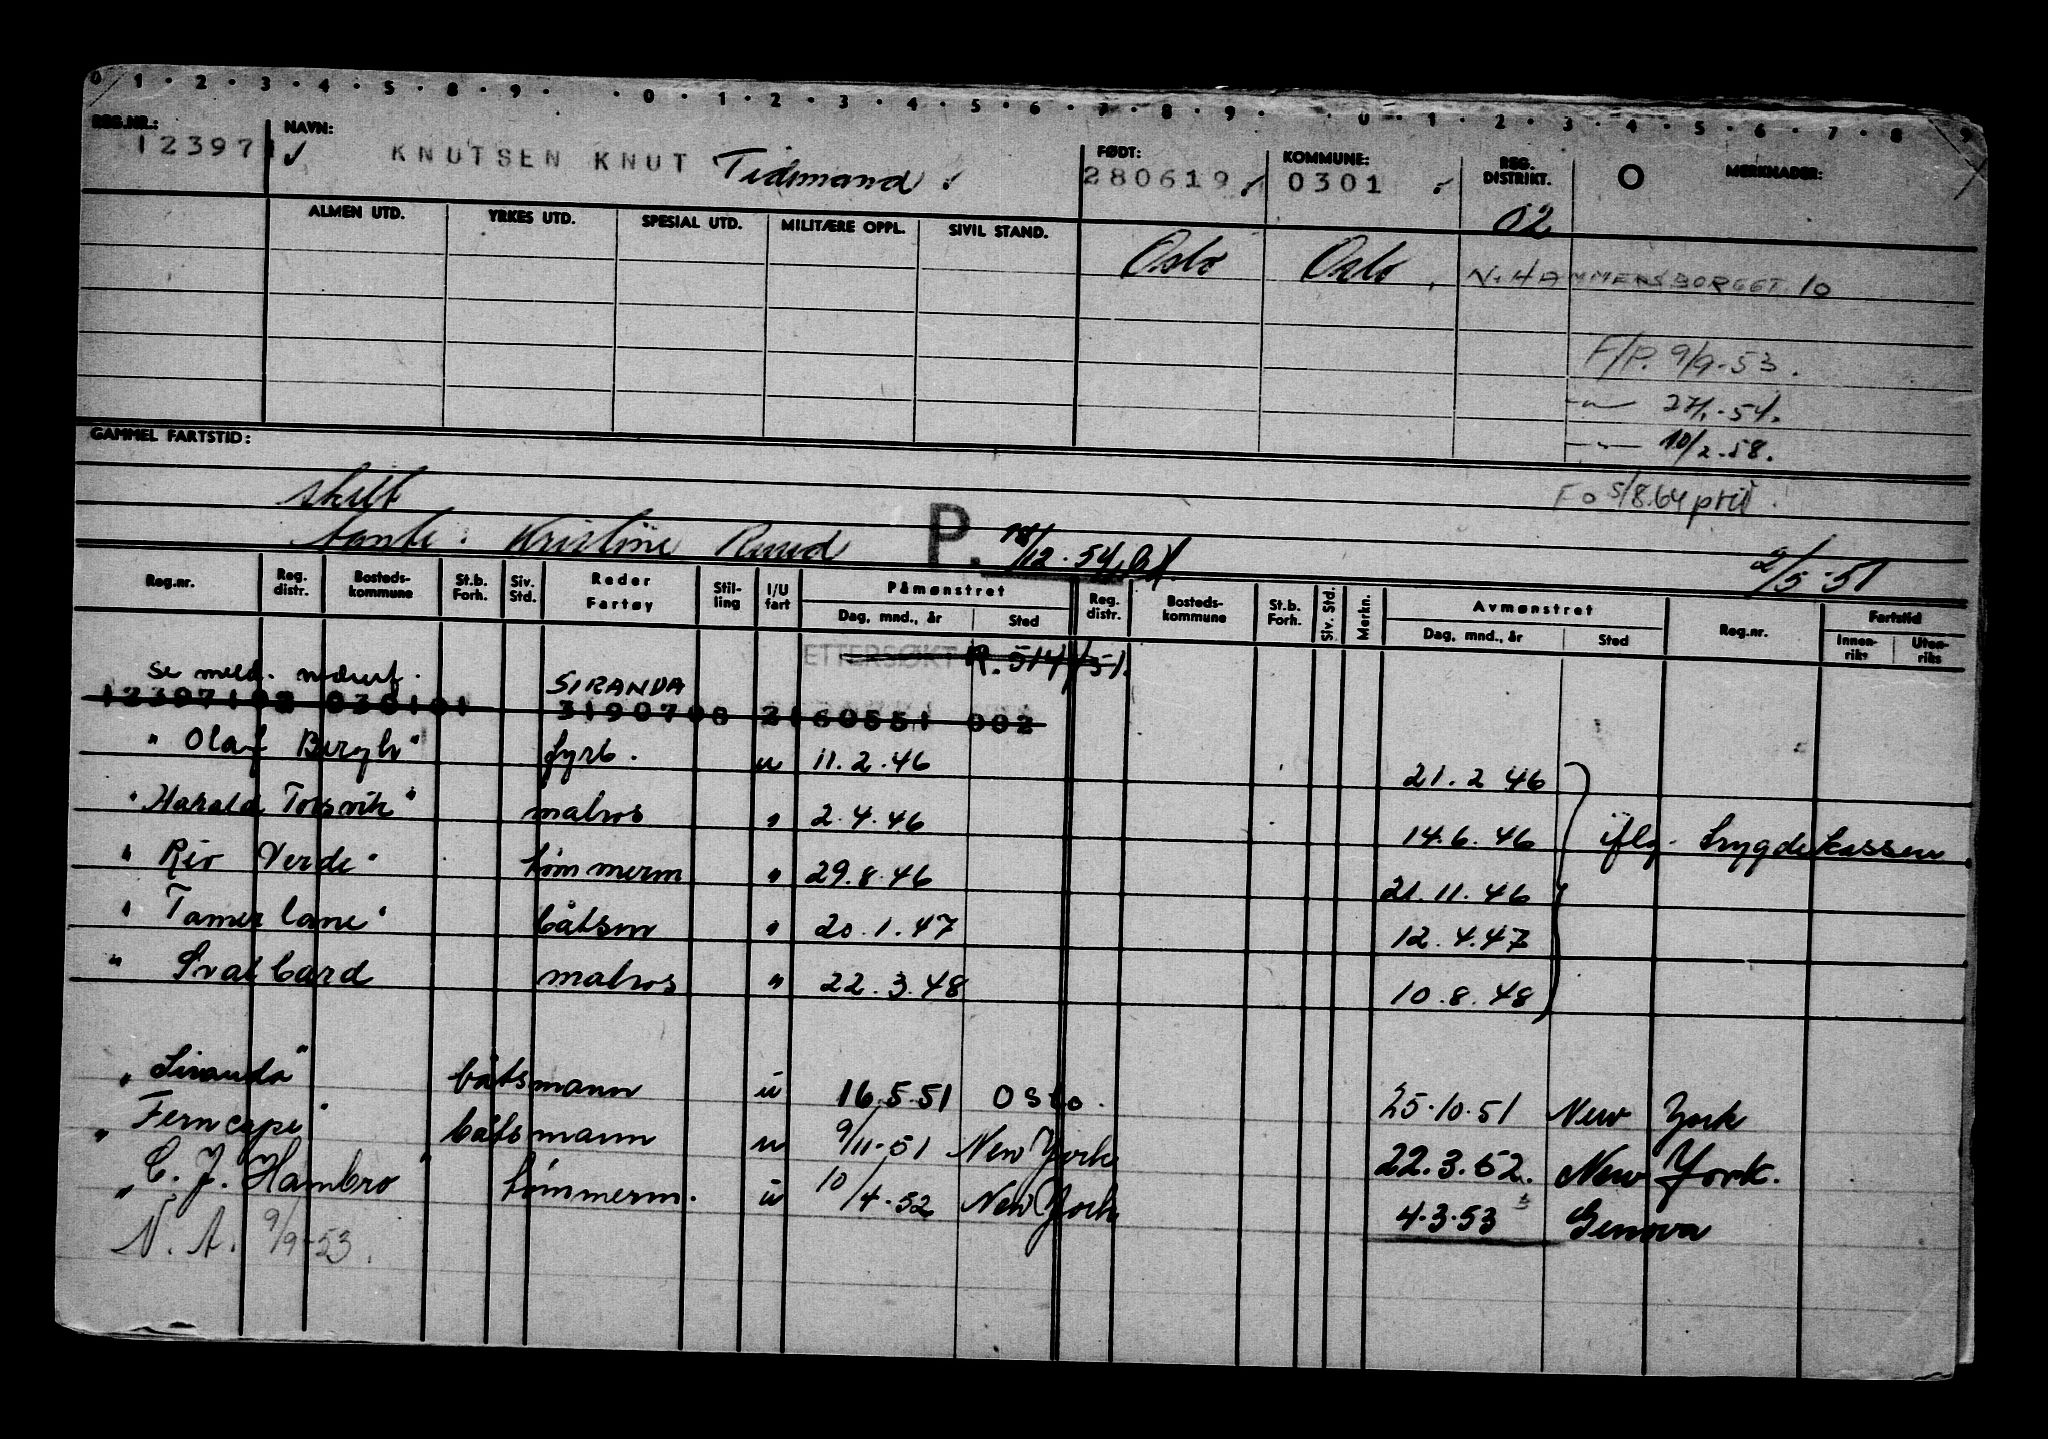 0 1 · 2 · 3 · 4 · 5 · 8 · 9 · · 0 · 1 · 2 · 3 · 4 · 5 · 6 · 7 · 8 · 9 · · 0 · 1 · 2 · 3 · 4 · 5 · 6 · 7 · 8 · 9
REG.NR.: NAVN: FØDT: KOMMUNE: REG. DISTRIKT. O MERKNADER:
123971 KNUTSEN KNUT Tidemand 280619 0301 02
ALMEN UTD. YRKES UTD. SPESIAL UTD. MILITÆRE OPPL. SIVIL STAND.
Oslo Oslo N. HAMMERSBORGGT. 10
F/P. 9/9-53.
-"- 27/1-54.
-"- 10/2-58.
GAMMEL FARTSTID:
skilt Fo 5/8.64 priv
tante: Kristine Ruud P. 18/12-54 2/5-51
Reg.nr. Reg. distr. Bosteds-kommune St.b. Forh. Siv. Std. Reder Fartøy Stil-ling I/U fart Påmønstret Reg. distr. Bosteds-kommune St.b. Forh. Siv. Std. Merkn. Avmønstret Reg.nr. Fartstid
Dag, mnd., år Sted Dag, mnd., år Sted Innen-riks Uten-riks
ETTERSØKT R. 514/51.
se meld. nederst. SIRANDA
123971 02 0301 01 3190708 2160551 002
"Olaf Bergh" fyrb. u 11.2.46 21.2 46
"Harald Torsvik" matros " 2.4.46 14.6.46 iflg. Trygdekassen.
"Rio Verde" tømmerm " 29.8.46 21.11.46
"Tamerlane" båtsm " 20.1.47 12.4.47
" Svalbard matros " 22.3.48 10.8.48
"Siranda" båtsmann u 16.5.51 Oslo. 25.10.51 New York
"Ferncape" båtsmann u 9/11-51 New York 22.3.52. New York.
"C. J. Hambro" tømmerm. u 10/4-52 New York 4.3.53 Genova
N. A. 9/9-53.